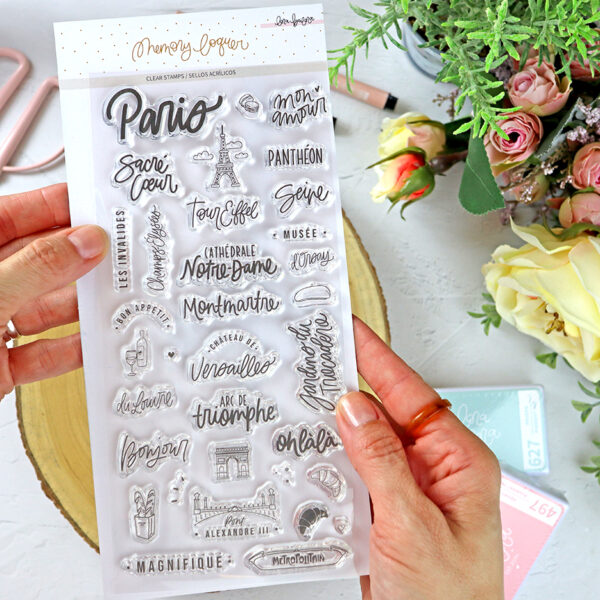 memory loquer
CLEAR STAMPS / SELLOS ACRÍLICOS
Paris
mon amour
Sacré Cœur
PANTHÉON
Tour Eiffel
Seine
LES INVALIDES
Champs Elysées
CATHÉDRALE
Notre-Dame
MUSÉE
d'Orsay
Montmartre
BON APPETIT
CHÂTEAU DE
Versailles
Jardins du Trocadéro
du Louvre
ARC DE
triomphe
Bonjour
ohlàlà
Pont
ALEXANDRE III
MAGNIFIQUE
METROPOLITAIN
627
497